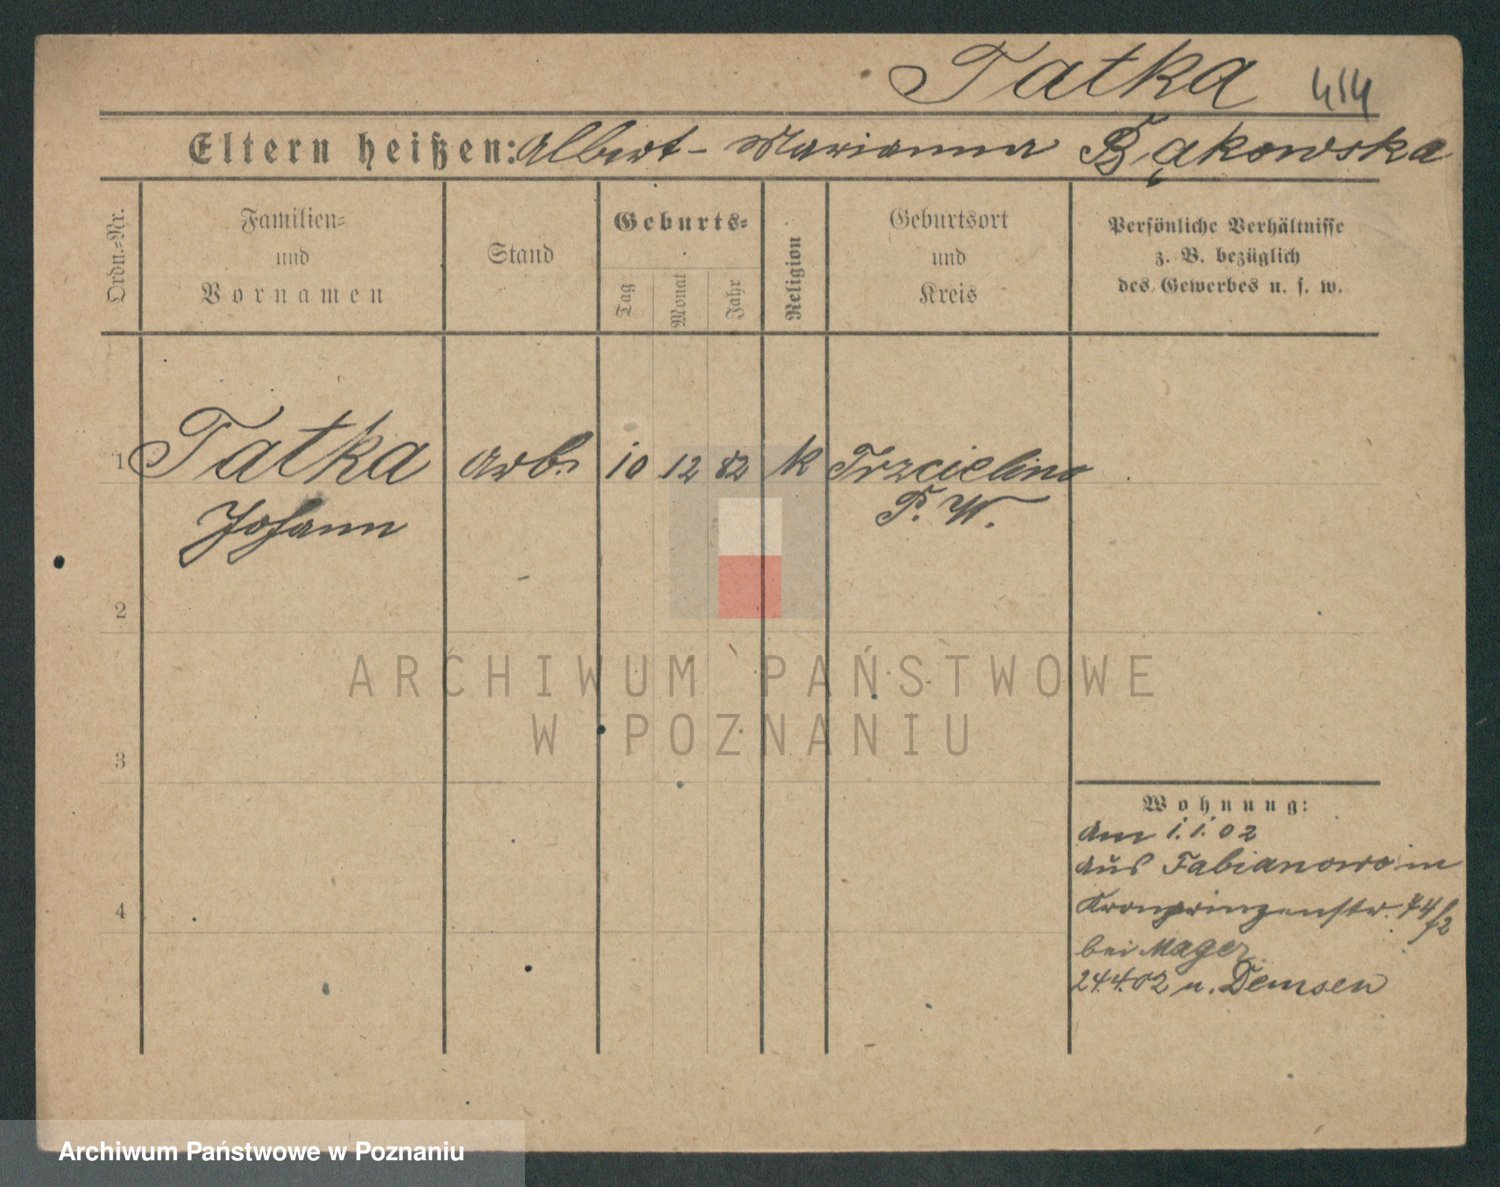 Tatka 414
Eltern heißen: Albert - Marianna Bąkowska
Ordn.-Nr.
Familien-
und
Vornamen
Stand
Geburts-
Tag
Monat
Jahr
Religion
Geburtsort
und
Kreis
Persönliche Verhältnisse
z. B. bezüglich
des Gewerbes u. s. w.
1 Tatka Arb. 10 12 82 K Trzcielino
Johann P. W.
2
3
4
Wohnung:
Am 1.1.02
aus Fabianowo in
Kronprinzenstr. 74/2
bei Mager
24.4.02 n. Demsen
ARCHIWUM PAŃSTWOWE
W POZNANIU
Archiwum Państwowe w Poznaniu